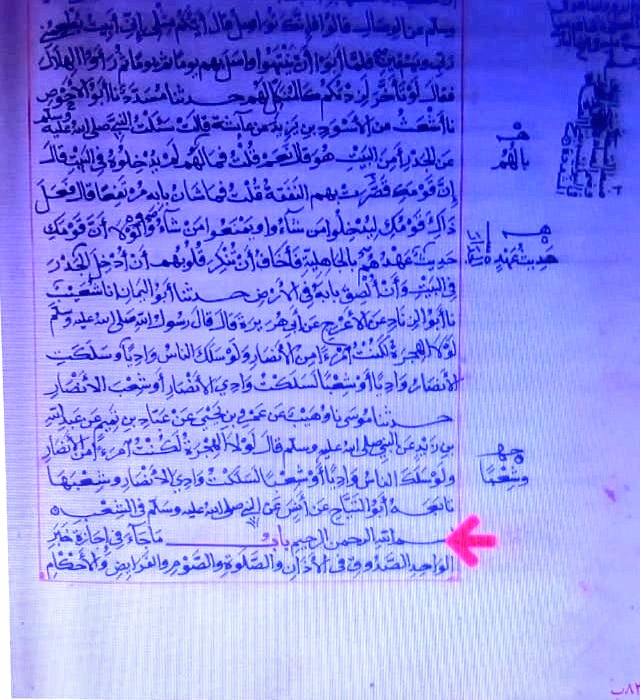 وسلم عن الوصال قالوا فإنك تواصل قال أيكم مثلي إني أبيت يطعمني
ربي ويسقين فلما أبوا أن ينتهوا واصل بهم يوما ثم يوما ثم رأوا الهلال
فقال لو تأخر لزدتكم كالمنكل لهم حدثنا مسدد نا أبو الأحوص
نا أشعث عن الأسود بن يزيد عن عائشة قالت سألت النبي صلى الله عليه وسلم
عن الجدر أمن البيت هو قال نعم قلت فما لهم لم يدخلوه في البيت قال
إن قومك قصرت بهم النفقة قلت فما شأن بابه مرتفعا قال فعل
ذاك قومك ليدخلوا من شاءوا ويمنعوا من شاءوا ولولا أن قومك
حديث عهدهم بالجاهلية فأخاف أن تنكر قلوبهم أن أدخل الجدر
في البيت وأن ألصق بابه في الأرض حدثنا أبو اليمان أنا شعيب
نا أبو الزناد عن الأعرج عن أبي هريرة قال قال رسول الله صلى الله عليه وسلم
لولا الهجرة لكنت امرءا من الأنصار ولو سلك الناس واديا وسلكت
الأنصار واديا أو شعبا لسلكت وادي الأنصار أو شعب الأنصار
حدثنا موسى نا وهيب عن عمرو بن يحيى عن عباد بن تميم عن عبد الله
بن زيد عن النبي صلى الله عليه وسلم قال لولا الهجرة لكنت امرءا من الأنصار
ولو سلك الناس واديا أو شعبا لسلكت وادي الأنصار وشعبها
تابعه أبو التياح عن أنس عن النبي صلى الله عليه وسلم في الشعب ه
بسم الله الرحمن الرحيم باب ما جاء في إجازة خبر
الواحد الصدوق في الأذان والصلوة والصوم والفرائض والأحكام
بالهم
حديث عهد
وشعبا